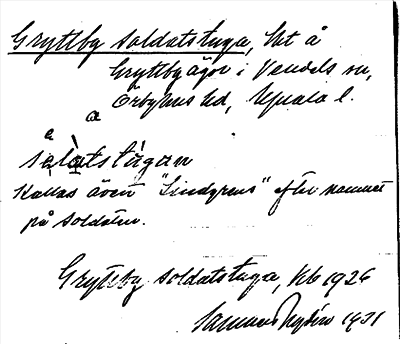 Gryttby soldatstuga, lht å
Gryttby ägor i Vendels sn,
Örbyhus hd, Uppsala l.
a
e
sàlatstúgan
Kallas även "Lindgrens" efter namnet
på soldaten.
Gryttby soldatstuga, Kb 1926
1931